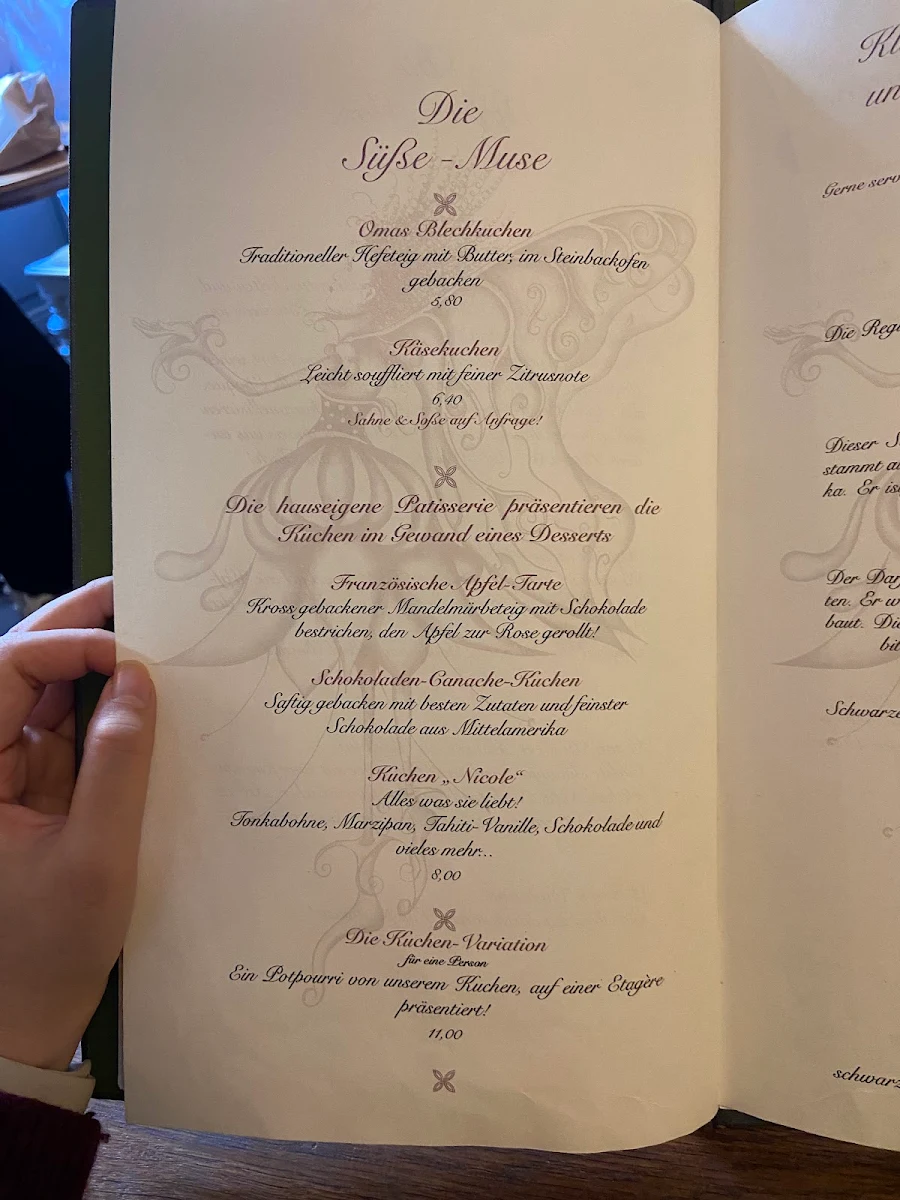 Die
Süße - Muse
Omas Blechkuchen
Traditioneller Hefeteig mit Butter, im Steinbackofen
gebacken
5,80
Käsekuchen
Leicht souffliert mit feiner Zitrusnote
6,40
Sahne & Soße auf Anfrage!
Die hauseigene Patisserie präsentieren die
Kuchen im Gewand eines Desserts
Französische Apfel-Tarte
Kross gebackener Mandelmürbeteig mit Schokolade
bestrichen, den Apfel zur Rose gerollt!
Schokoladen-Canache-Kuchen
Saftig gebacken mit besten Zutaten und feinster
Schokolade aus Mittelamerika
Kuchen „Nicole“
Alles was sie liebt!
Tonkabohne, Marzipan, Tahiti-Vanille, Schokolade und
vieles mehr...
8,00
Die Kuchen-Variation
für eine Person
Ein Potpourri von unserem Kuchen, auf einer Etagère
präsentiert!
11,00
Gerne
Die
Dieser
stammt
ka. Er
Der
ten. Er
baut.